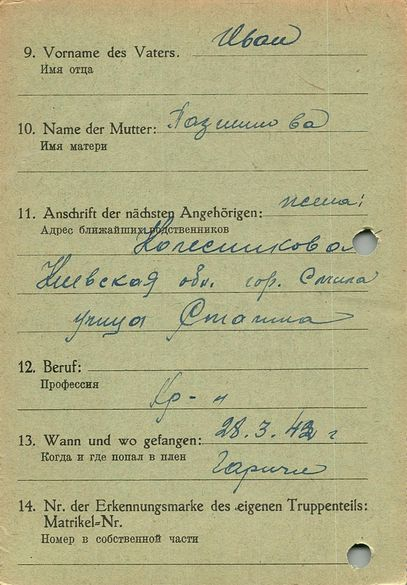 9. Vorname des Vaters. Иван
Имя отца
10. Name der Mutter:
Имя матери
11. Anschrift der nächsten Angehörigen: жена:
Адрес ближайших родственников
Колесникова
Киевская обл. гор. Смила
улица Сталина
12. Beruf:
Профессия
Кр-н
13. Wann und wo gefangen: 28.3.42 г
Когда и где попал в плен
14. Nr. der Erkennungsmarke des eigenen Truppenteils:
Matrikel-Nr.
Номер в собственной части